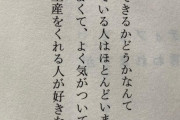 きるかどうかなんて
ている人はほとんどいま
なくて、よく気がついて
産をくれる人が好きな